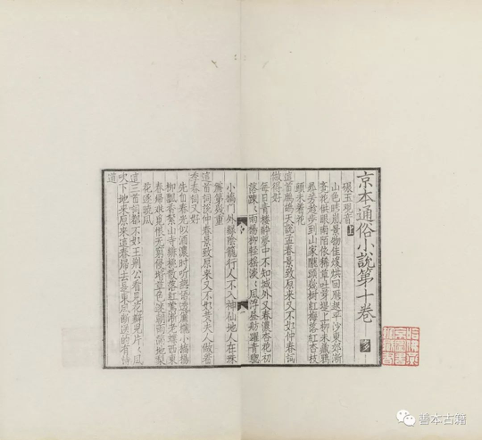 京本通俗小說第十卷
碾玉觀音上
山色晴嵐景物佳煖烘回鴈起平沙東郊漸
覺花供眼南陌依稀草吐芽堤上柳未藏鴉
尋芳趁步到山家隴頭幾樹紅梅落紅杏枝
頭未著花
這首鷓鴣天說孟春景致原來又不如仲春詞
做得好
每日青樓醉夢中不知城外又春濃杏花初
落疎疎雨楊柳輕搖淡淡風浮畫舫躍青驄
小橋門外綠陰籠行人不入神仙地人在珠
簾第幾重
這首詞說仲春景致原來又不如黃夫人做着
季春詞又好
先自春光似酒濃時聽燕語透簾櫳小橋楊
柳飄香絮山寺緋桃散落紅鶯漸老蝶西東
春歸難覓恨無窮侵堦草色迷朝雨滿地梨
花逐曉風
這三首詞都不如王荊公看見花瓣兒片片風
吹下地來原來這春歸去是東風斷送的有詩
道
善本古籍